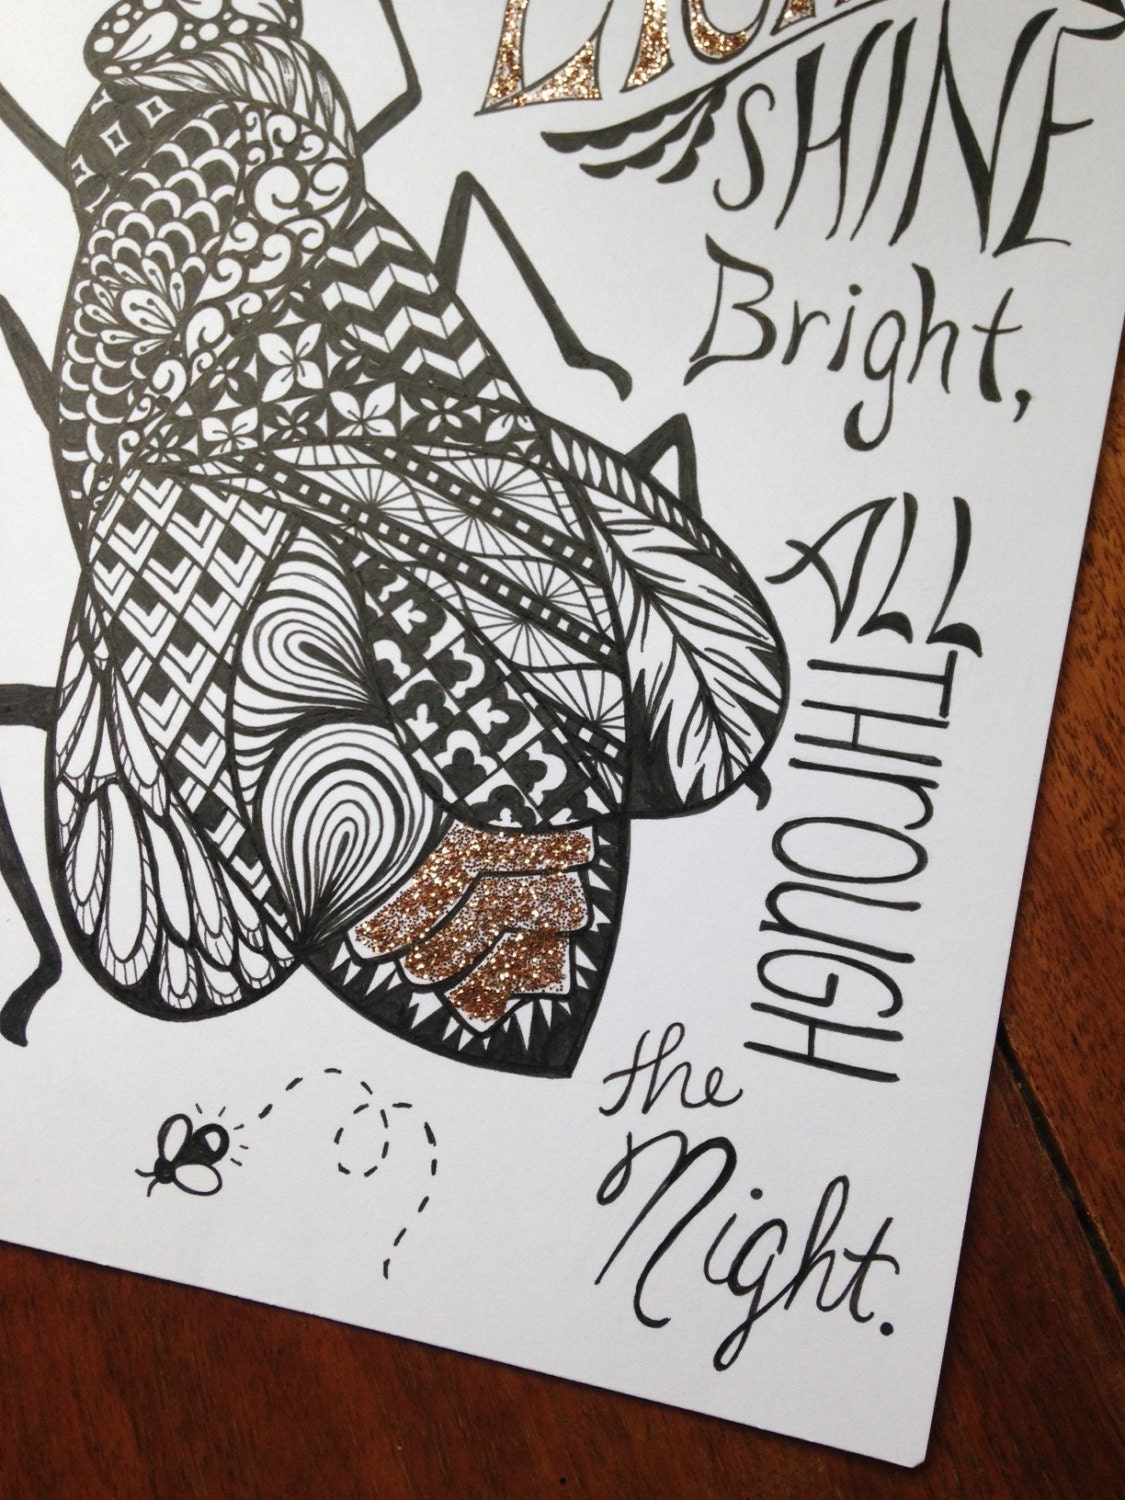 SHINE
Bright,
ALL
THROUGH
the
Night.